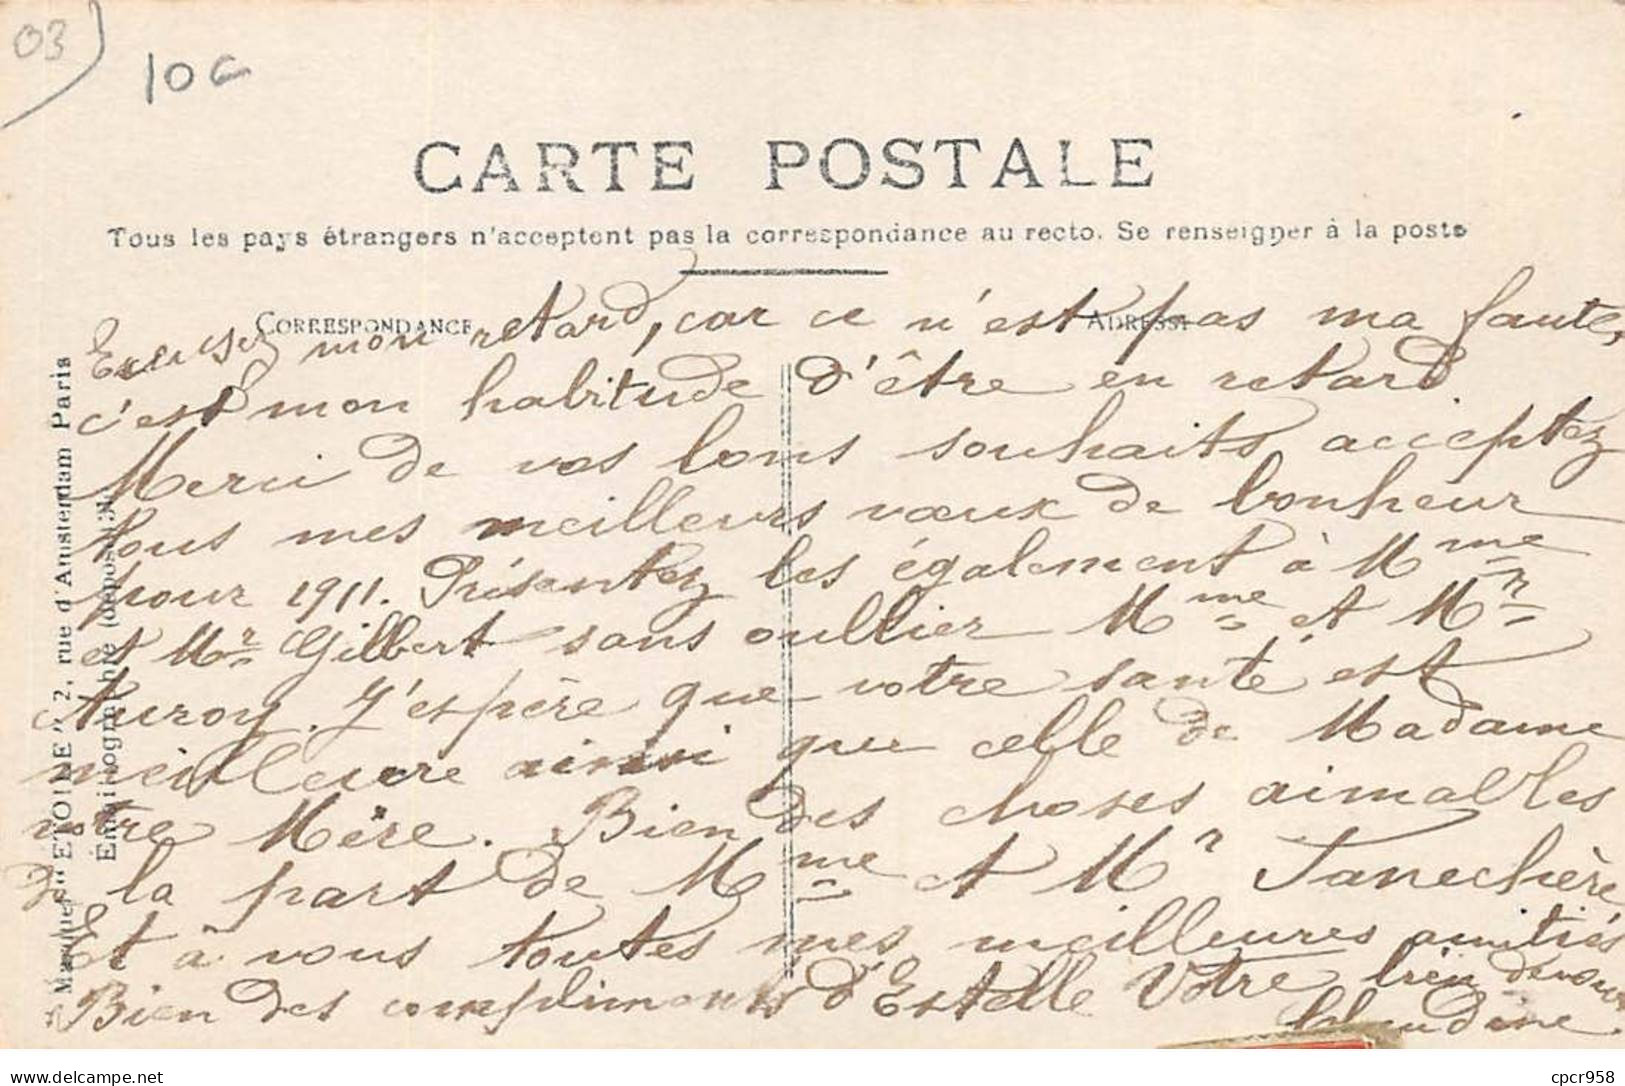 03
10c
CARTE POSTALE
Tous les pays étrangers n'acceptent pas la correspondance au recto. Se renseigner à la poste
CORRESPONDANCE
ADRESSE
Excusez mon retard, car ce n'est pas ma faute,
c'est mon habitude d'être en retard
Merci de vos bons souhaits acceptez
tous mes meilleurs vœux de bonheur
pour 1911. Présentez les également à Mme
et Mr Gilbert sans oullier Mme et Mr
Auroy. J'espère que votre santé est
meilleure ainsi que celle de Madame
votre Mère. Bien des choses aimables
de la part de Mme et Mr Janechère
Et à vous toutes mes meilleures amitiés
Bien des compliments d'Estelle Votre bien
Claudine.
Marque "ETOILE" 2, rue d'Amsterdam Paris
cpcr958